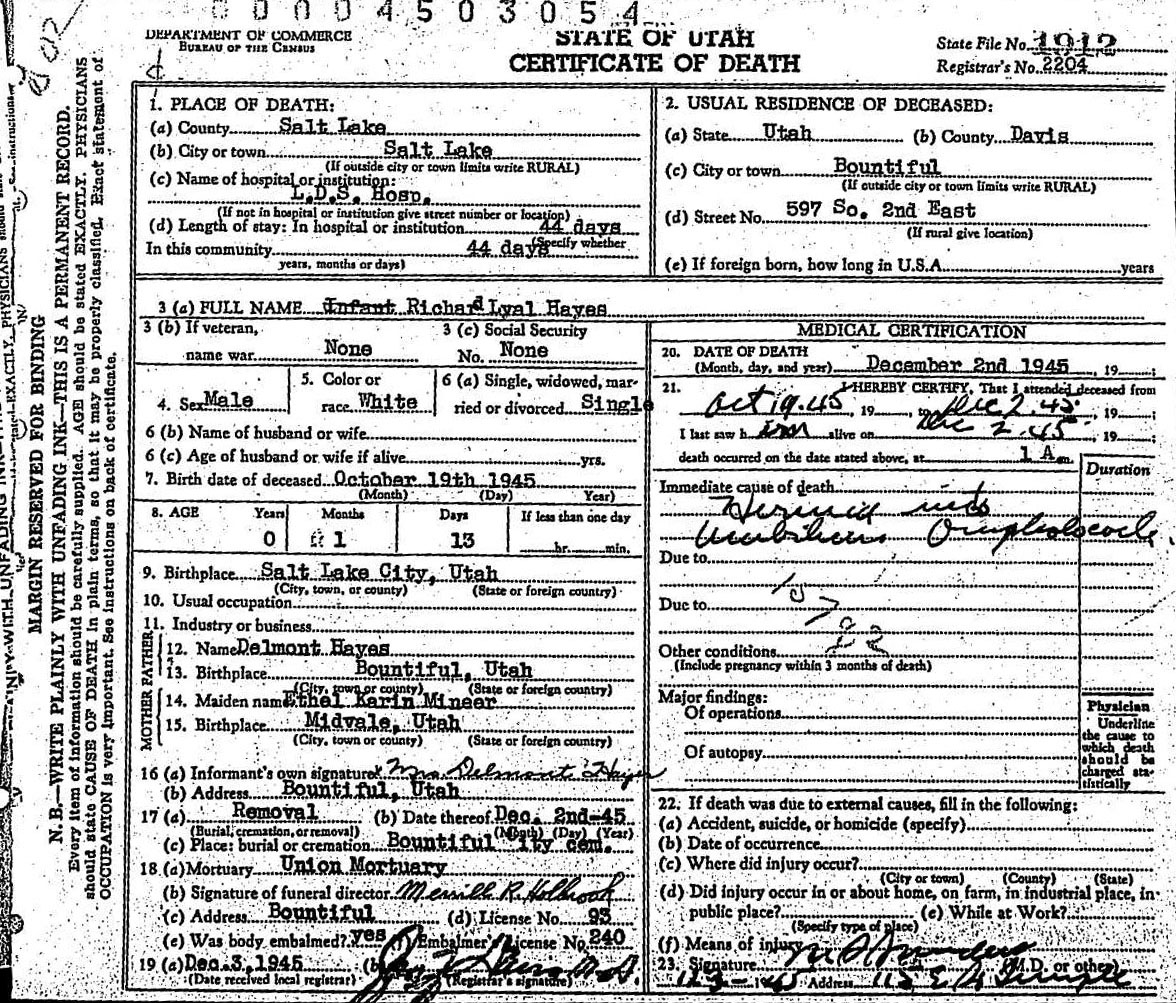 0 0 0 0 4 5 0 3 0 5 4
DEPARTMENT OF COMMERCE
BUREAU OF THE CENSUS
STATE OF UTAH
CERTIFICATE OF DEATH
State File No. 1912
Registrar's No. 2204
MARGIN RESERVED FOR BINDING
N. B.—WRITE PLAINLY WITH UNFADING INK—THIS IS A PERMANENT RECORD.
Every item of information should be carefully supplied. AGE should be stated EXACTLY. PHYSICIANS
should state CAUSE OF DEATH in plain terms, so that it may be properly classified. Exact statement of
OCCUPATION is very important. See instructions on back of certificate.
1. PLACE OF DEATH:
(a) County Salt Lake
(b) City or town Salt Lake
(If outside city or town limits write RURAL)
(c) Name of hospital or institution:
L.D.S. Hosp.
(If not in hospital or institution give street number or location)
(d) Length of stay: In hospital or institution 44 days
(Specify whether
In this community 44 days
years, months or days)
2. USUAL RESIDENCE OF DECEASED:
(a) State Utah (b) County Davis
(c) City or town Bountiful
(If outside city or town limits write RURAL)
(d) Street No. 597 So. 2nd East
(If rural give location)
(e) If foreign born, how long in U.S.A. years
3 (a) FULL NAME Infant Richard Lyal Hayes
3 (b) If veteran,
name war None
3 (c) Social Security
No. None
4. Sex Male
5. Color or
race White
6 (a) Single, widowed, mar-
ried or divorced Single
6 (b) Name of husband or wife
6 (c) Age of husband or wife if alive yrs.
7. Birth date of deceased October 19th 1945
(Month) (Day) Year)
8. AGE Years Months Days If less than one day
0 1 13 hr. min.
9. Birthplace Salt Lake City, Utah
(City, town, or county) (State or foreign country)
10. Usual occupation
11. Industry or business
FATHER
12. Name Delmont Hayes
13. Birthplace Bountiful, Utah
(City, town or county) (State or foreign country)
MOTHER
14. Maiden name Ethel Karin Mineer
15. Birthplace Midvale, Utah
(City, town or county) (State or foreign country)
16 (a) Informant's own signature Mrs. Delmont Hayes
(b) Address Bountiful, Utah
17 (a) Removal (b) Date thereof Dec. 2nd-45
(Burial, cremation, or removal) (Month) (Day) (Year)
(c) Place: burial or cremation Bountiful ity cem.
18 (a) Mortuary Union Mortuary
(b) Signature of funeral director Merrill R. Holbrook
(c) Address Bountiful (d) License No. 93
(e) Was body embalmed? yes (f) Embalmer's License No. 240
19 (a) Dec. 3, 1945 (b)
(Date received local registrar) (Registrar's signature)
MEDICAL CERTIFICATION
20. DATE OF DEATH
(Month, day, and year) December 2nd 1945, 19
21. I HEREBY CERTIFY, That I attended deceased from
Oct 19.45, 19 , to Dec 2.45, 19 ;
I last saw h im alive on Dec 2.45, 19 ;
death occurred on the date stated above, at 1 A m.
Duration
Immediate cause of death
Hernia into
Umbilicus Omphalocele
Due to
Due to
Other conditions
(Include pregnancy within 3 months of death)
Major findings:
Of operations
Of autopsy
Physician
Underline
the cause to
which death
should be
charged sta-
tistically
22. If death was due to external causes, fill in the following:
(a) Accident, suicide, or homicide (specify)
(b) Date of occurrence
(c) Where did injury occur?
(City or town) (County) (State)
(d) Did injury occur in or about home, on farm, in industrial place, in
public place? (e) While at Work?
(Specify type of place)
(f) Means of injury
23. Signature (M.D. or other)
12-3-1945 Address 115 E So Temple